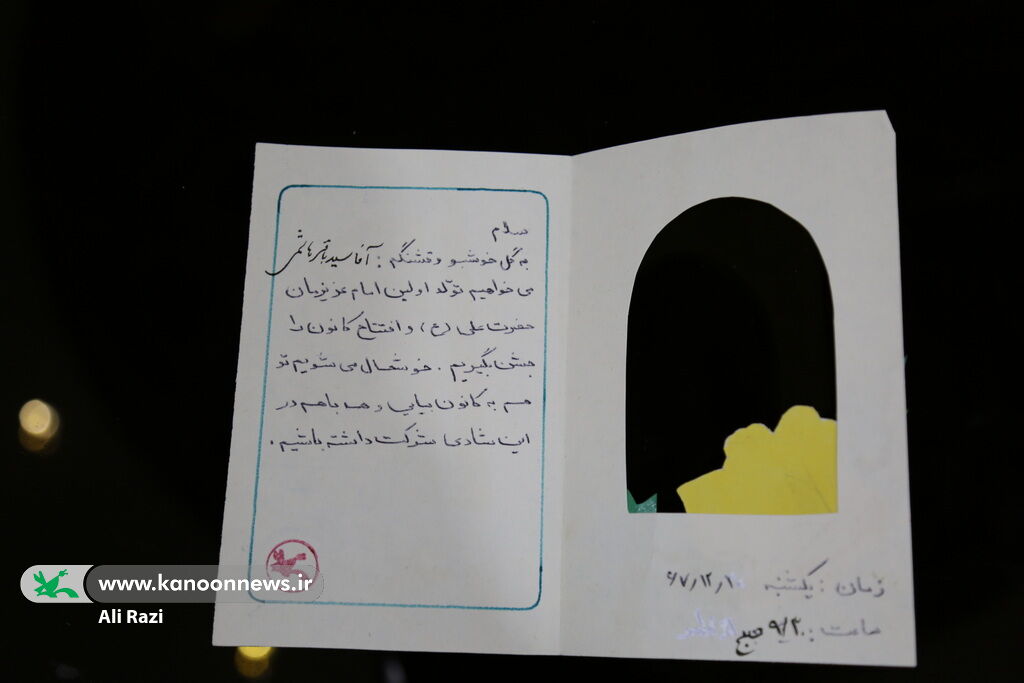 سلام
به گل خوشبو و قشنگم : آقا سید باقر هاشمی
می خواهیم تولد اولین امام عزیزمان
حضرت علی (ع) و افتتاح کانون را
جشن بگیریم . خوشحال می شویم تو
هم به کانون بیایی و همه باهم در
این شادی شرکت داشته باشیم .
زمان : یکشنبه
ساعت : ۹/۳۰ صبح
www.kanoonnews.ir
Ali Razi